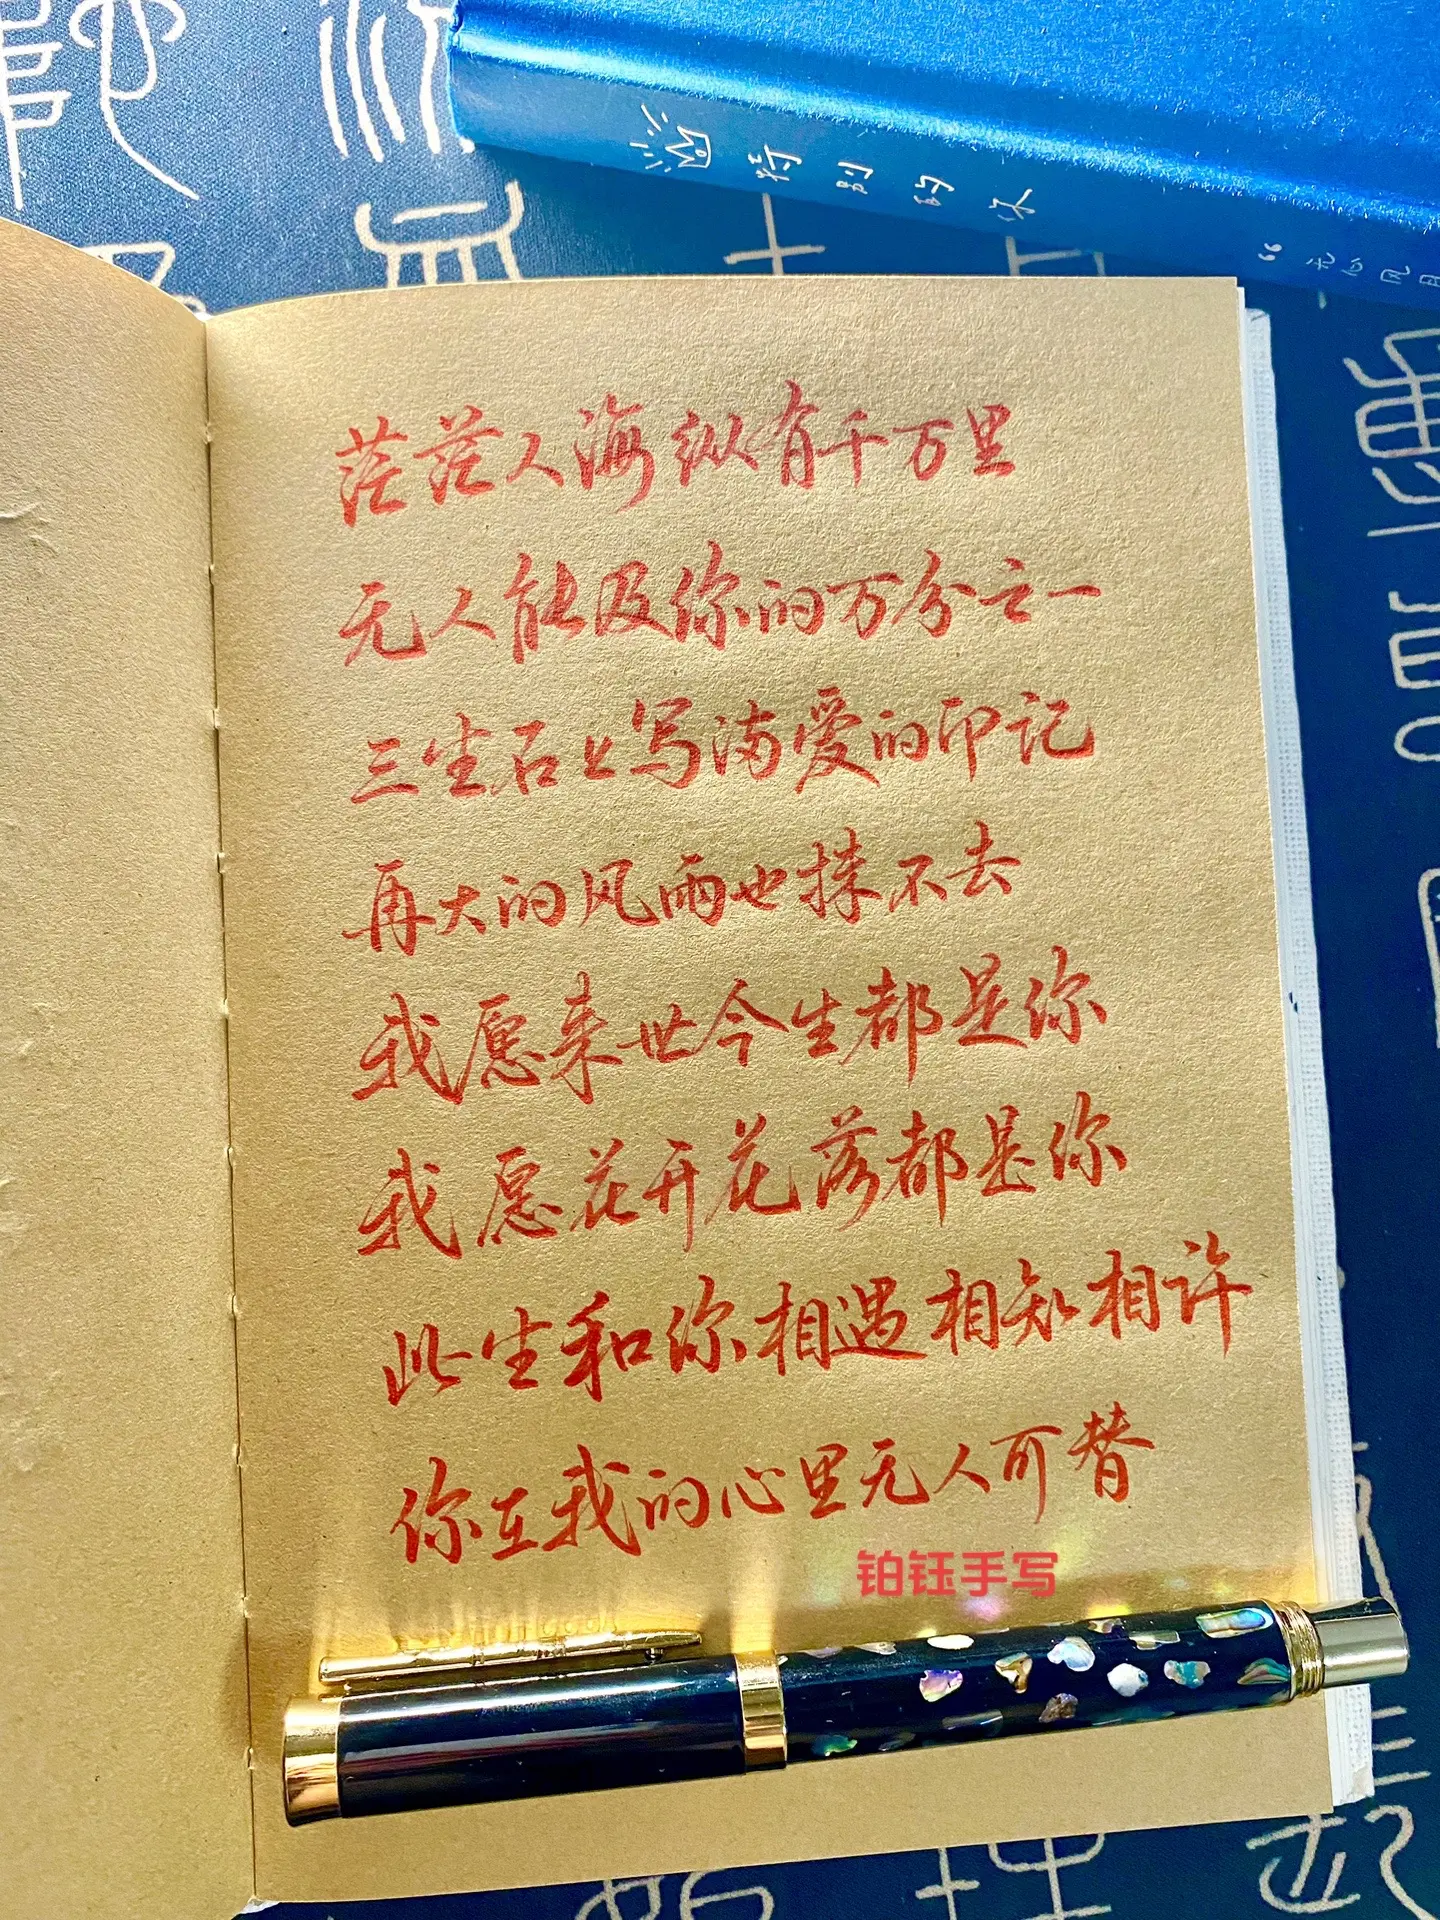 特别的
茫茫人海纵有千万里
无人能及你的万分之一
三生石上写满爱的印记
再大的风雨也抹不去
我愿来世今生都是你
我愿花开花落都是你
此生和你相遇相知相许
你在我的心里无人可替
铂钰手写